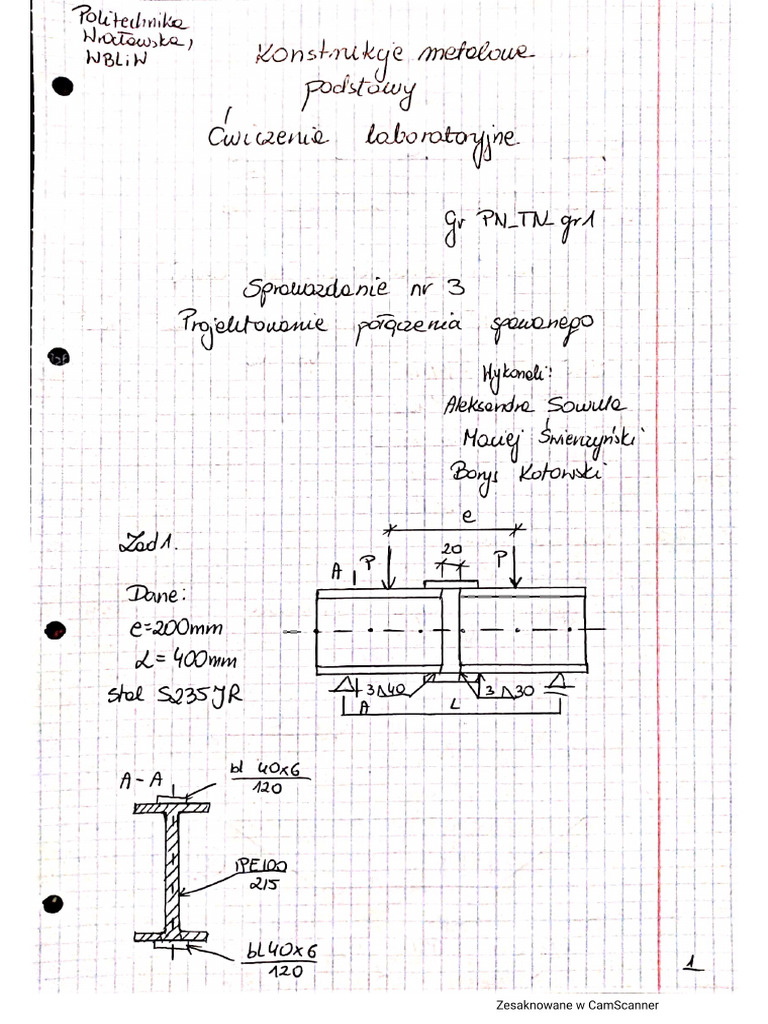 Politechnika
Wrocławska,
WBLiW
Konstrukcje metalowe
podstawy
Ćwiczenia laboratoryjne
Gr PN_TN_gr1
Sprawozdanie nr 3
Projektowanie połączenia spawanego
Wykonali:
Aleksandra Sowula
Maciej Świerzyński
Borys Kotowski
Zad 1.
Dane:
e=200mm
L=400mm
stal S235JR
e
20
A P P
3 ⊿ 40 3 ⊿ 30
A L
A-A
bl 40x6
120
IPE100
215
bl 40x6
120
1
Zesaknowane w CamScanner